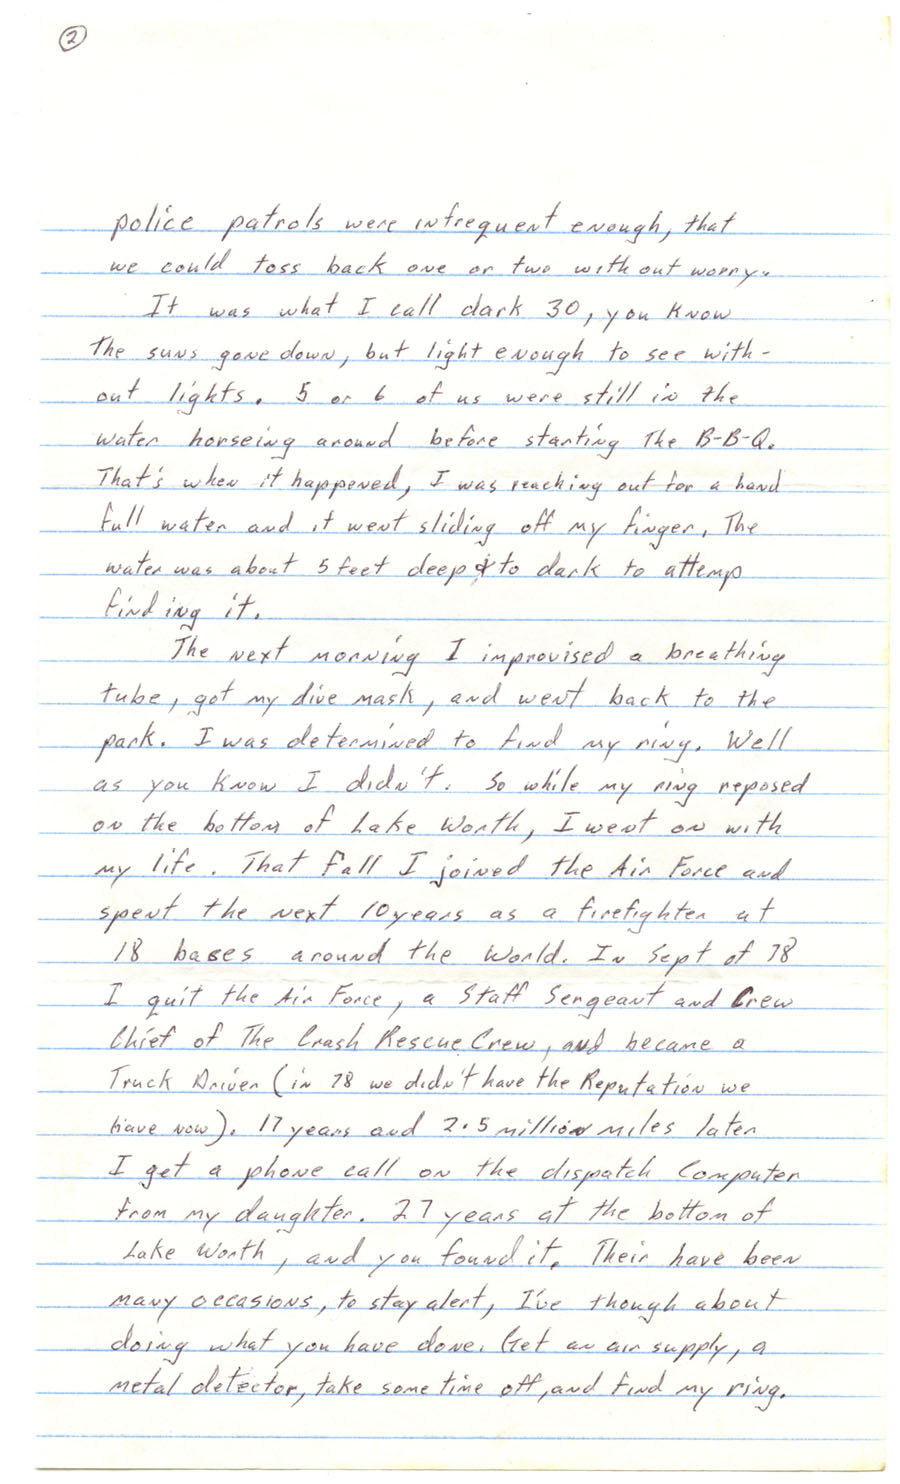 2
police patrols were infrequent enough, that
we could toss back one or two with out worry.
It was what I call dark 30, you know
the suns gone down, but light enough to see with-
out lights. 5 or 6 of us were still in the
water horseing around before starting the B-B-Q.
That's when it happened, I was reaching out for a hand
full water and it went sliding off my finger, The
water was about 5 feet deep & to dark to attemp
finding it.
The next morning I improvised a breathing
tube, got my dive mask, and went back to the
park. I was determined to find my ring. Well
as you know I didn't. So while my ring reposed
on the bottom of Lake Worth, I went on with
my life. That fall I joined the Air Force and
spent the next 10 years as a firefighter at
18 bases around the World. In Sept of 78
I quit the Air Force, a Staff Sergeant and Crew
Chief of The Crash Rescue Crew, and became a
Truck Driver (in 78 we didn't have the Reputation we
have now). 17 years and 2.5 million miles later
I get a phone call on the dispatch Computer
from my daughter. 27 years at the bottom of
Lake Worth, and you found it. Their have been
many occasions, to stay alert, I've though about
doing what you have done. Get an air supply, a
metal detector, take some time off, and find my ring.